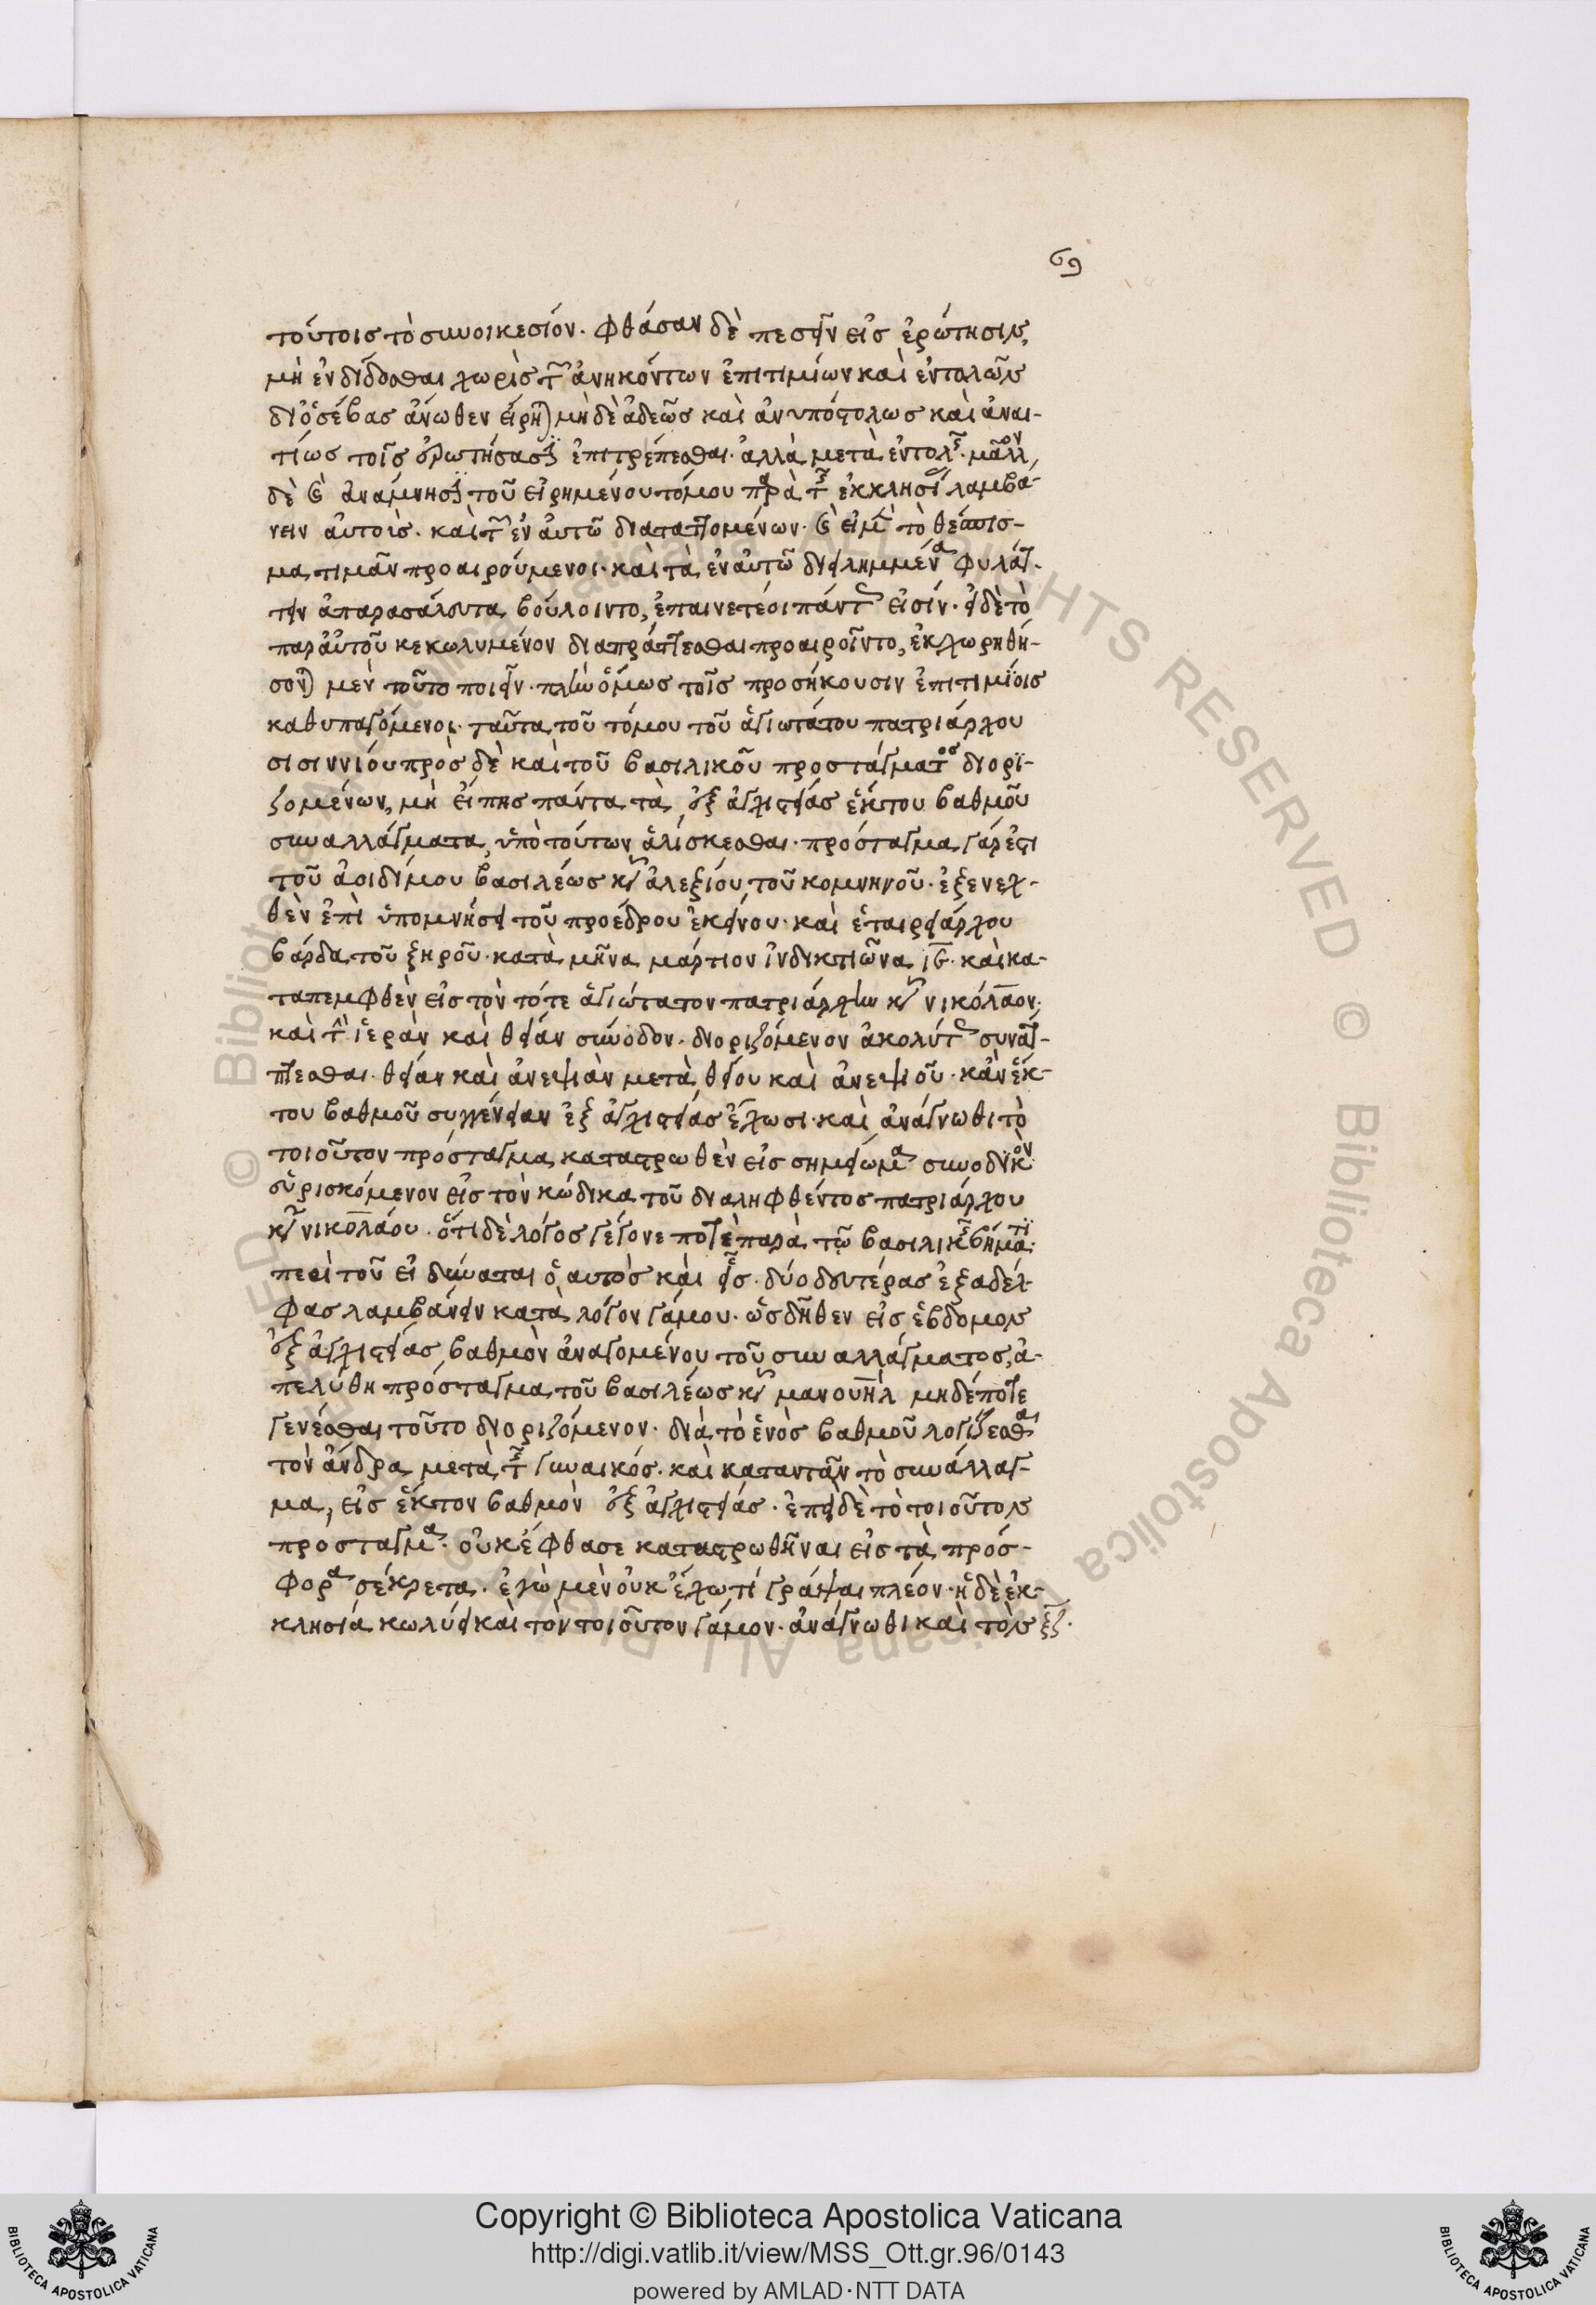 69
τούτοις τὸ συνοικεσίον. φθάσαν δὲ πεσεῖν εἰς ἐρώτησιν,
μὴ ἐνδίδοσθαι χωρὶς τῶν ἀνηκόντων ἐπιτιμίων καὶ ἐντολῶν
ἄνωθεν εἴρηται μὴ δὲ ἀδεῶς καὶ ἀνυπόστολως καὶ ἀναι-
τίως τοῖς ἐρωτήσασι ἐπιτρέπεσθαι. ἀλλὰ μετὰ ἐντολῆς. μᾶλλον
δὲ καὶ ἀναμνήσεως τοῦ εἰρημένου τόμου παρὰ τῆς ἐκκλησίας λαμβά-
νειν αὐτοὶς. καὶ τῶν ἐν αὐτῶ διαταττομένων. καὶ εἰ μὲν τὸ θέσπισ-
μα τιμᾶν προαιρούμενοι. καὶ τὰ ἐν αὐτῶ διειλημμένα φυλάτ-
τειν ἀπαρασάλευτα βούλοιντο, ἐπαινετέοι πάντως εἰσίν. εἰ δὲ τὸ
παρ αὐτοῦ κεκωλυμένον διαπράττεσθαι προαιροῖντο, ἐκχωρηθή-
σονται μὲν τοῦτο ποιεῖν. πλὴν ὅμως τοῖς προσήκουσιν ἐπιτιμίοις
καθυπαγόμενοι. ταῦτα τοῦ τόμου τοῦ ἁγιωτάτου πατριάρχου
σισιννίου πρὸς δὲ καὶ τοῦ βασιλικοῦ προστάγματος διορι-
ζομένων, μὴ εἴπης πάντα τὰ ἐξ ἀγχιστείας ἕκτου βαθμοῦ
συναλλάγματα, ὑπὸ τούτων ἁλίσκεσθαι. πρόσταγμα γάρ ἐστι
τοῦ ἀοιδίμου βασιλέως κυροῦ ἀλεξίου τοῦ κομνηνοῦ. ἐξενεχ-
θὲν ἐπὶ ὑπομνήσει τοῦ προέδρου ἐκείνου. καὶ ἑταιρειάρχου
βάρδα τοῦ ξηροῦ. κατὰ μῆνα μάρτιον ἰνδικτιῶνα ιϛ. καὶ κα-
ταπεμφθὲν εἰς τὸν τότε ἁγιώτατον πατριάρχην κυρὸν νικόλαον.
καὶ τὴν ἱερὰν καὶ θείαν σύνοδον. διοριζόμενον ἀκολύτως συνάπ-
πτεσθαι. θείαν καὶ ἀνεψιὰν μετὰ θείου καὶ ἀνεψιοῦ. κἂν ἕκ-
του βαθμοῦ συγγένειαν ἐξ ἀγχιστείας ἔχωσι. καὶ ἀνάγνωθι τὸ
τοιοῦτον πρόσταγμα καταστρωθὲν εἰς σημείωμα συνοδικὸν
εὑρισκόμενον εἰς τὸν κώδικα τοῦ διαληφθέντος πατριάρχου
κυροῦ νικολάου. ὅτι δὲ λόγος γέγονε ποτὲ παρὰ τῷ βασιλικῷ βήματι
περὶ τοῦ εἰ δύναται ὁ αὐτὸς καὶ εἷς. δύο δευτέρας ἐξαδέλ-
φας λαμβάνειν κατὰ λόγον γάμου. ὡς δῆθεν εἰς ἕβδομον
ἐξ ἀγχιστείας βαθμὸν ἀναγομένου τοῦ συναλλάγματος, ἀ-
πελύθη πρόσταγμα τοῦ βασιλέως κυροῦ μανουὴλ μηδέποτε
γενέσθαι τοῦτο διοριζόμενον. διὰ τὸ ἑνὸς βαθμοῦ λογίζεσθαι
τὸν ἄνδρα μετὰ τῆς γυναικός. καὶ καταντᾶν τὸ συνάλλαγ-
μα, εἰς ἕκτον βαθμὸν ἐξ ἀγχιστείας. ἐπεὶ δὲ τὸ τοιοῦτον
προσταγμα. οὐκ ἔφθασε καταστρωθῆναι εἰς τὰ πρόσ-
φορα σέκρετα. ἐγὼ μὲν οὐκ ἔχω τί γράψαι πλέον. ἡ δὲ ἐκ-
κλησία κωλύει καὶ τὸν τοιοῦτον γάμον. ἀνάγνωθι καὶ τὸν
Copyright © Biblioteca Apostolica Vaticana
http://digi.vatlib.it/view/MSS_Ott.gr.96/0143
powered by AMLAD·NTT DATA
BIBLIOTECA APOSTOLICA VATICANA
BIBLIOTECA APOSTOLICA VATICANA